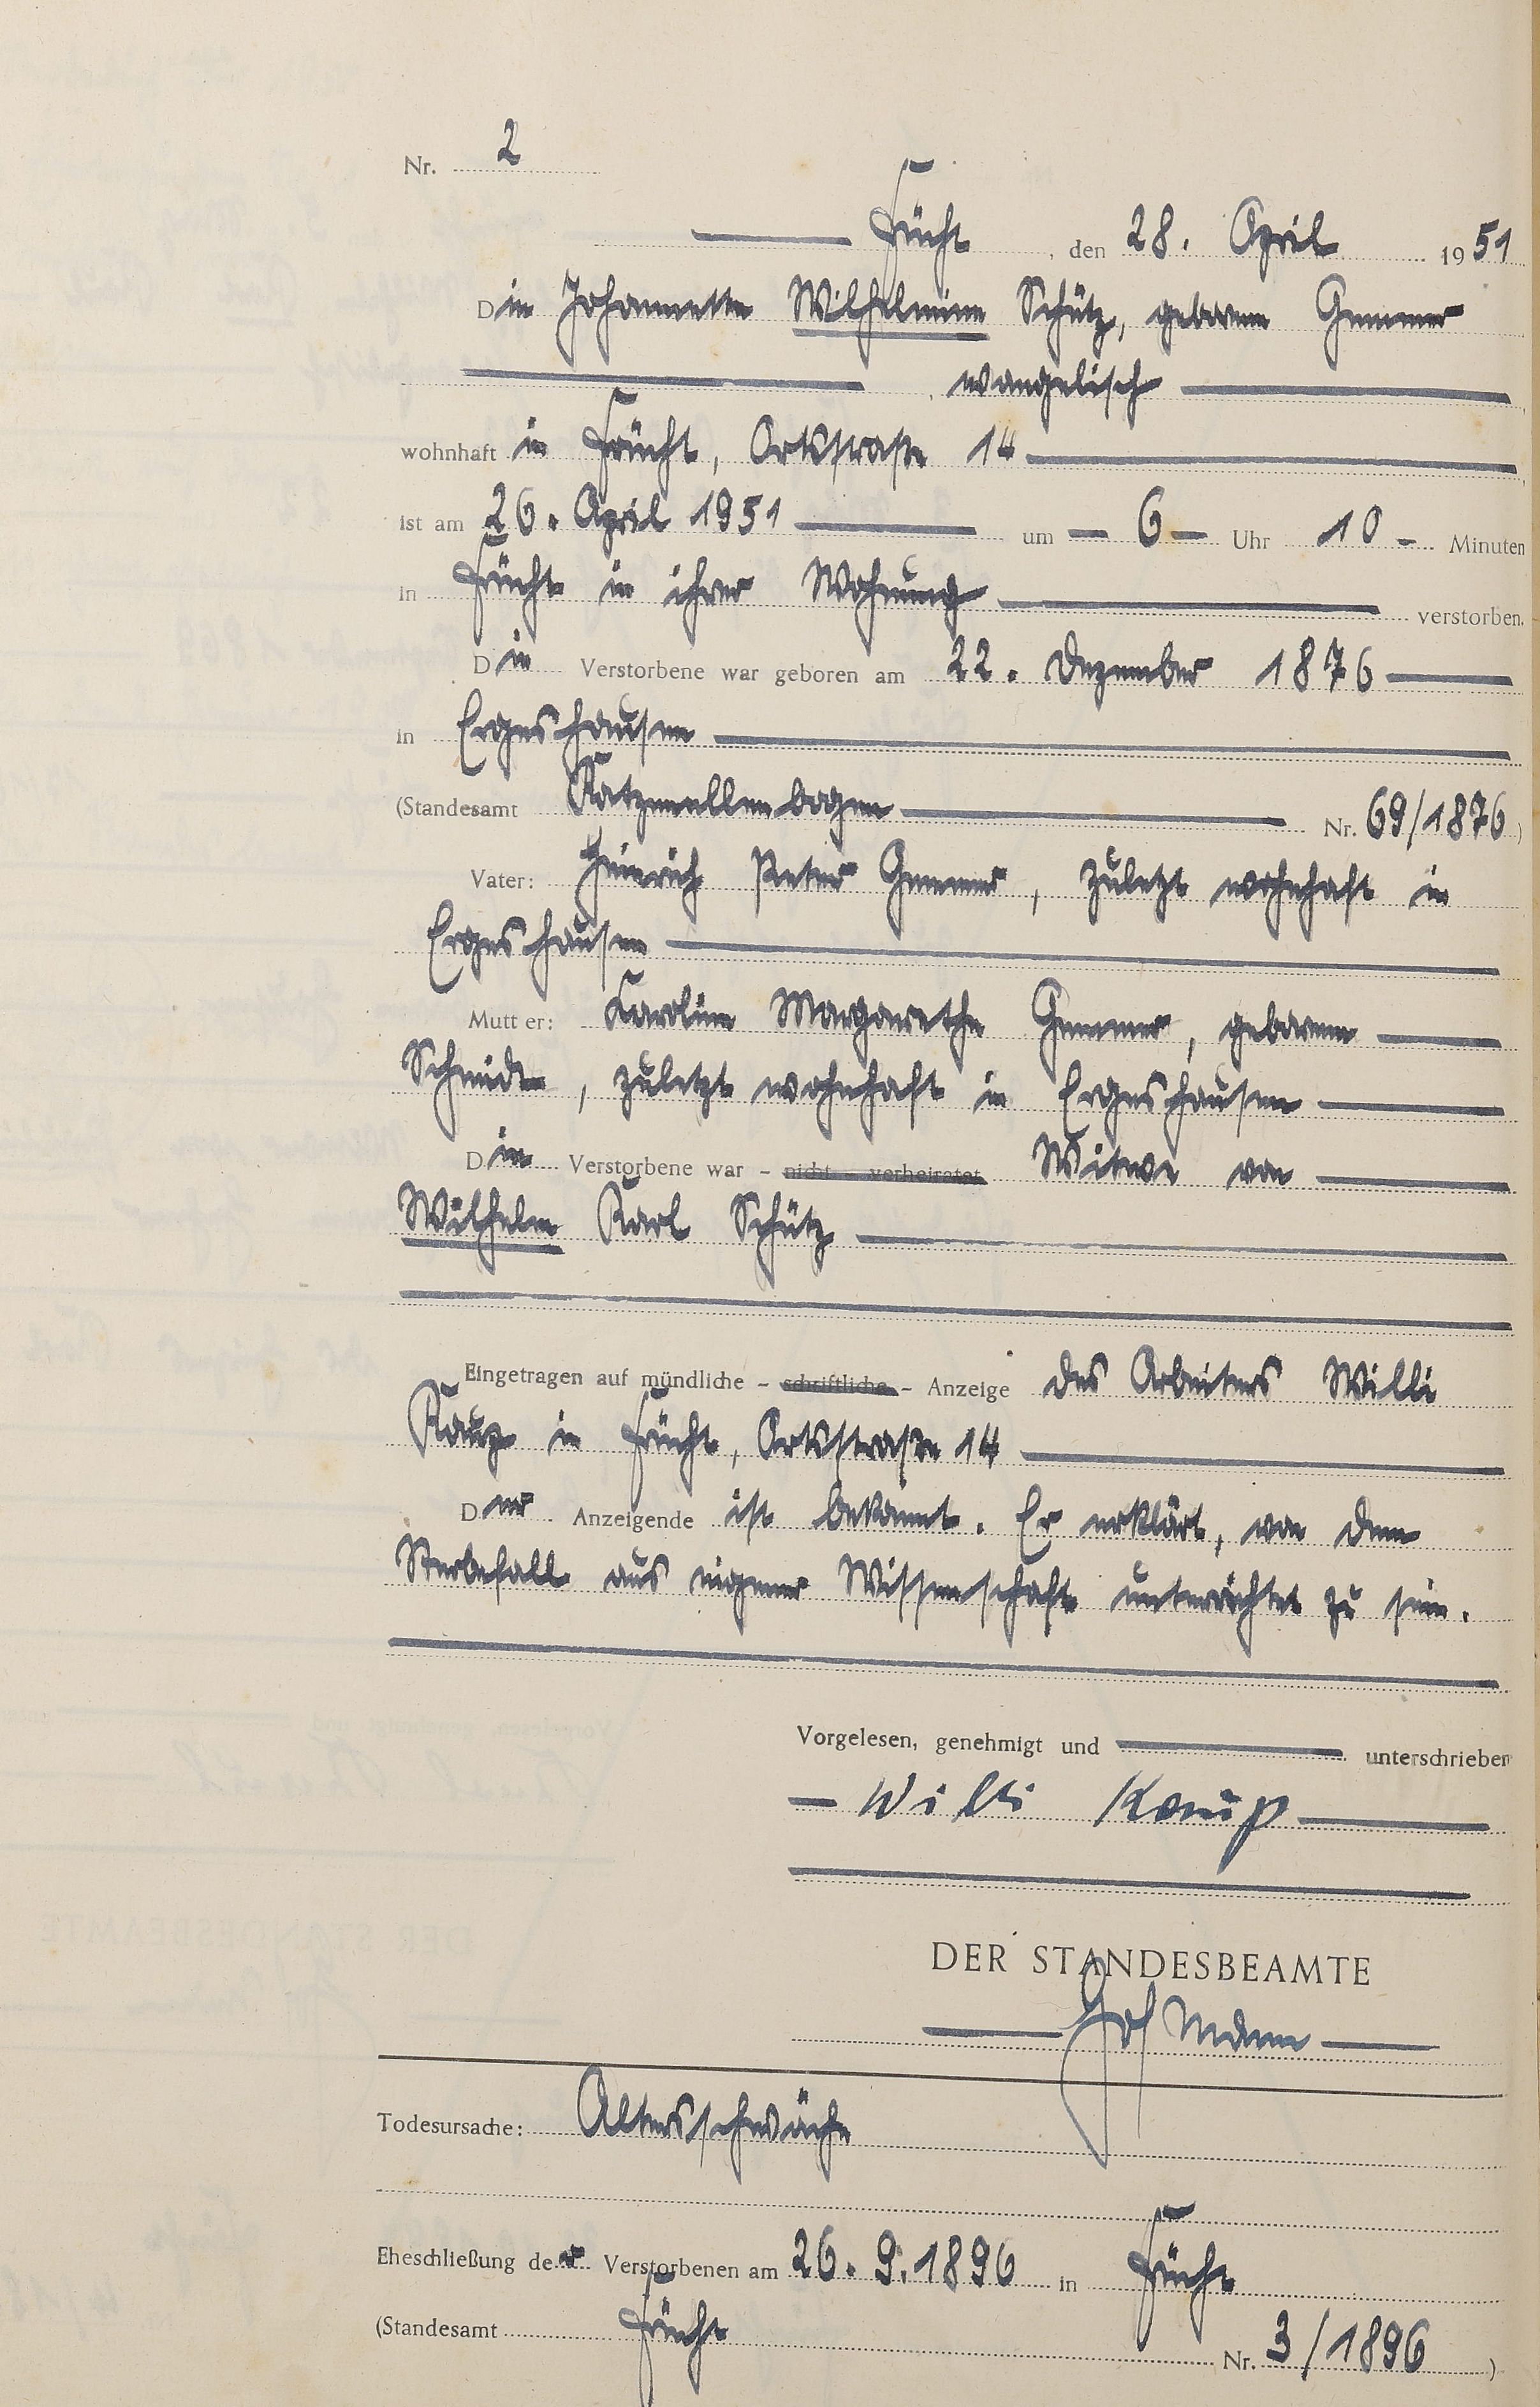 Nr. 2
Frücht, den 28. April 1951
Die Johannette Wilhelmine Schütz, geborene Gemmer
evangelisch
wohnhaft in Frücht, Ortsstraße 14
ist am 26. April 1951 um 6 Uhr 10 Minuten
in Frücht in ihrer Wohnung verstorben.
Die Verstorbene war geboren am 22. Dezember 1876
in Ergeshausen
(Standesamt Katzenellenbogen Nr. 69/1876)
Vater: Heinrich Peter Gemmer, zuletzt wohnhaft in
Ergeshausen
Mutter: Karoline Margarethe Gemmer, geborene
Schmidt, zuletzt wohnhaft in Ergeshausen
Die Verstorbene war - nicht - verheiratet Witwe von
Wilhelm Karl Schütz
Eingetragen auf mündliche - schriftliche - Anzeige des Arbeiters Willi
Kaup in Frücht, Ortsstraße 14
Der Anzeigende ist bekannt. Er erklärt, von dem
Sterbefall aus eigener Wissenschaft unterrichtet zu sein.
Vorgelesen, genehmigt und unterschrieben
Willi Kaup
DER STANDESBEAMTE
Hofmann
Todesursache: Altersschwäche
Eheschließung der Verstorbenen am 26. 9. 1896 in Frücht
(Standesamt Frücht Nr. 3/1896)